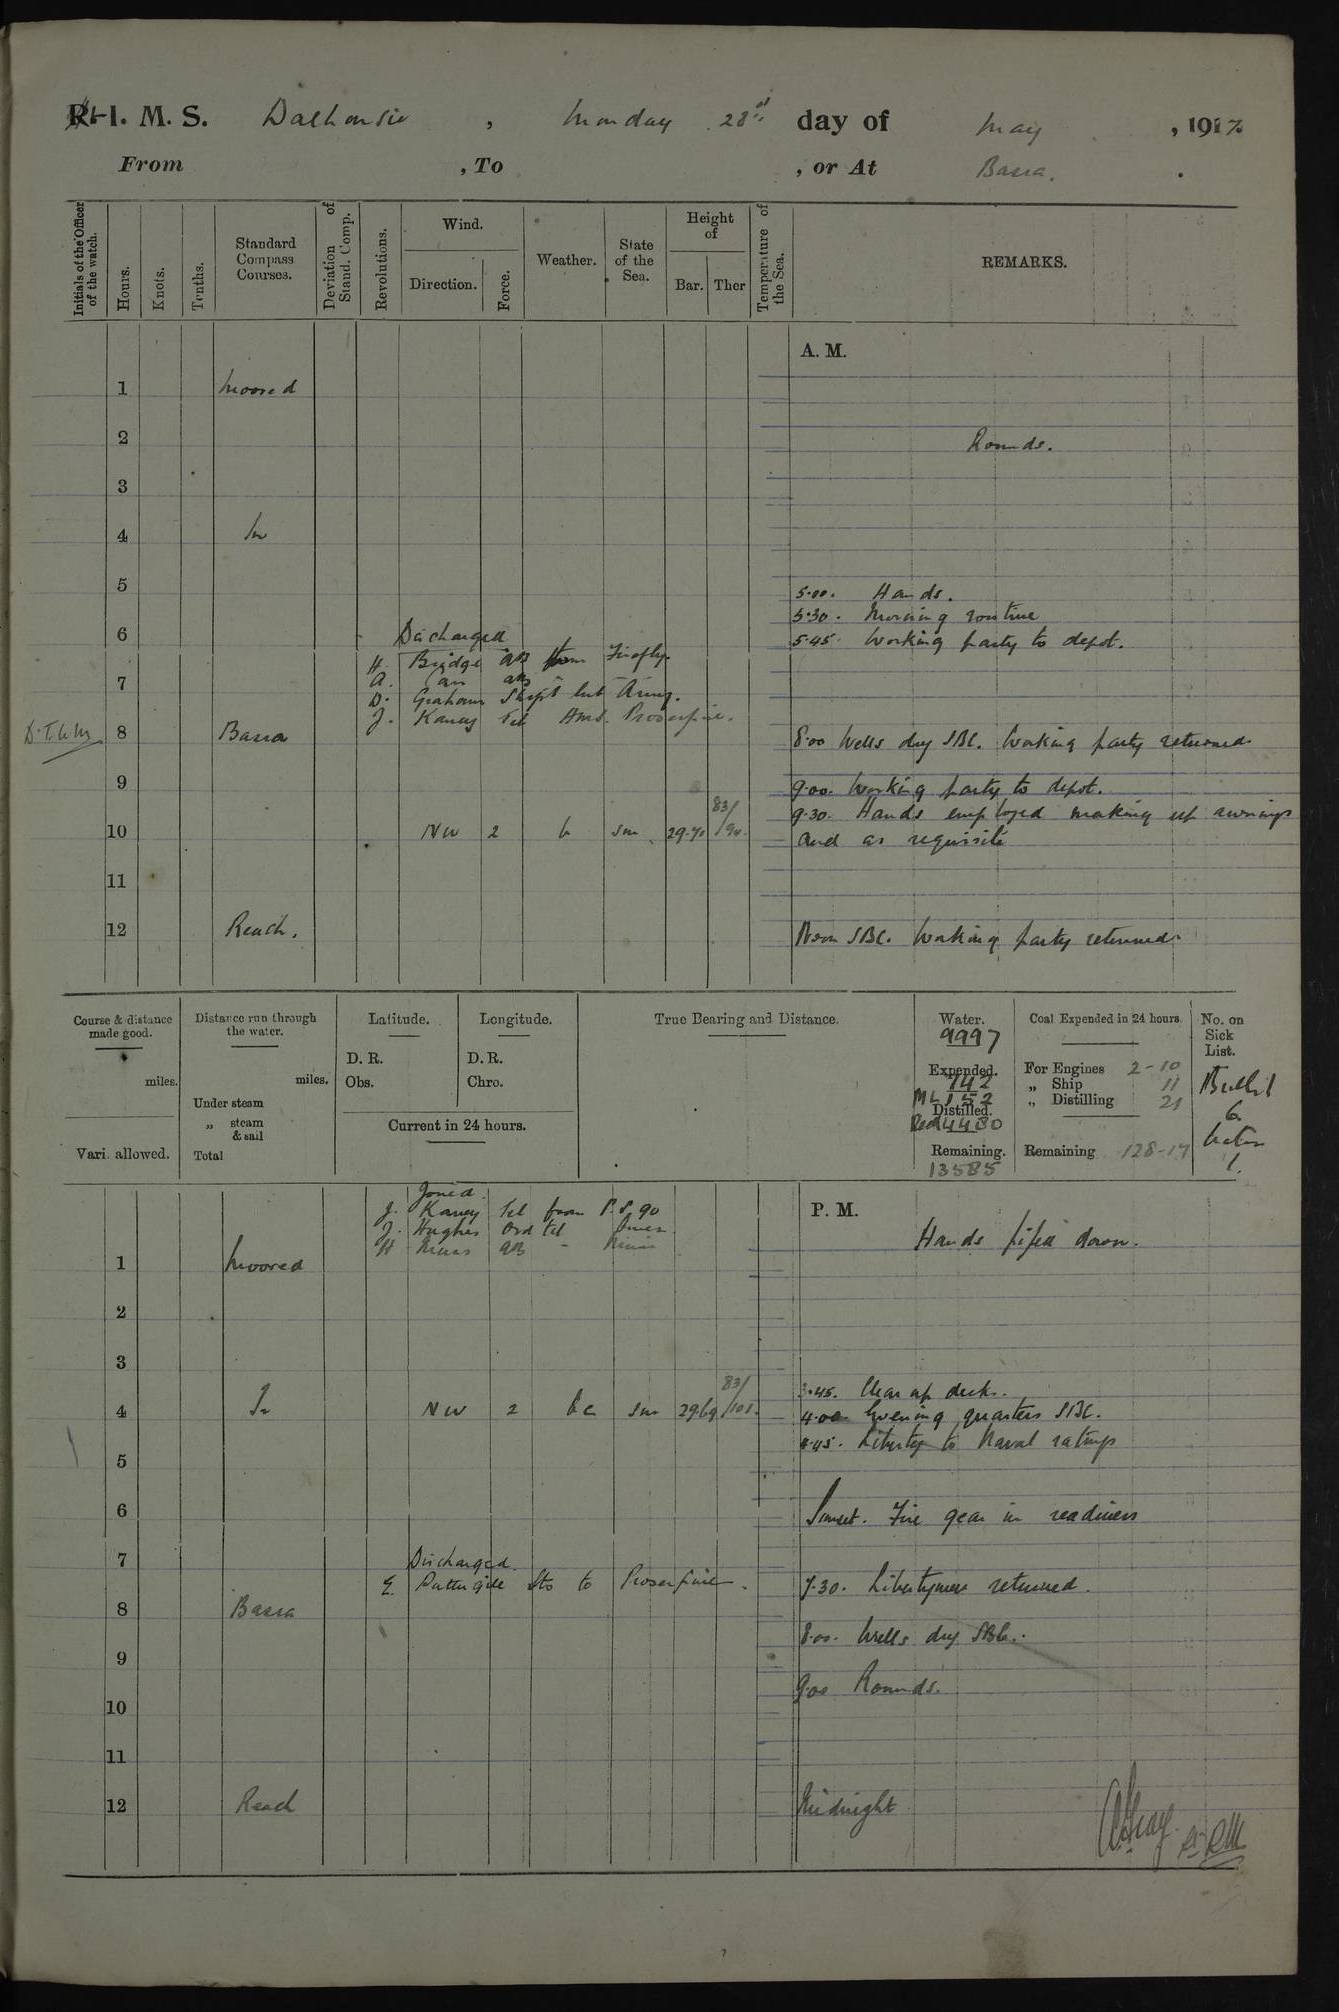 R. I. M. S. Dalhousie, Monday 28th day of May, 1917
From , To , or At Basra.
Initials of the Officer of the watch.
Hours.
Knots.
Tenths.
Standard Compass Courses.
Deviation of Stand. Comp.
Revolutions.
Wind.
Direction.
Force.
Weather.
State of the Sea.
Height of
Bar. Ther
Temperature of the Sea.
REMARKS.
A. M.
1 Moored
2 Rounds.
3
4 In
5
5.00. Hands.
5.30. Morning routine
6 Discharged 5.45. Working party to depot.
H. Bridge AB from Firefly
7 A. AB
D. Graham
J. Kaney Tel HMS. Proserpine.
8 Basra 8.00 Wells dry SBC. Working party returned
9 9.00. Working party to depot.
9.30. Hands employed making up awnings
10 NW 2 b sm 29.70 83/90 and as requisite
11
12 Reach. Noon SBC. Working party returned.
Course & distance made good.
miles.
Vari. allowed.
Distance run through the water.
miles.
Under steam
„ steam & sail
Total
Latitude.
D. R.
Obs.
Longitude.
D. R.
Chro.
Current in 24 hours.
True Bearing and Distance.
Water.
9997
Expended.
742
ML 152
Distilled.
Recd 4480
Remaining.
13585
Coal Expended in 24 hours.
For Engines 2-10
„ Ship 11
„ Distilling 21
Remaining 128-17
No. on Sick List.
British
6.
Native
1.
P. M.
Joined
J. Kaney Tel from P.S. 90
J. Hughes Ord Tel
H AB
Hands piped down.
1 Moored
2
3
3.45. Clear up decks.
4 In NW 2 bc sm 29.69 83/101. 4.00 Evening quarters SBC.
4.45. Liberty to Naval ratings
5
6 Sunset. Fire gear in readiness
7 Discharged
E. Pattergill Sto to Proserpine. 7.30. Libertymen returned.
8 Basra
8.00. Wells dry SBC.
9
9.00 Rounds.
10
11
12 Reach Midnight